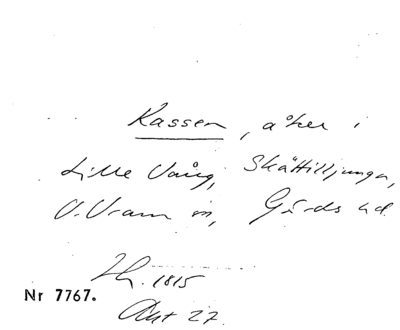 Kassen, åker i
Lille Vång, Skättilljunga,
V. Vram sn, Gärds hd.
Lh. 1815
Nr 7767.
Akt 27.